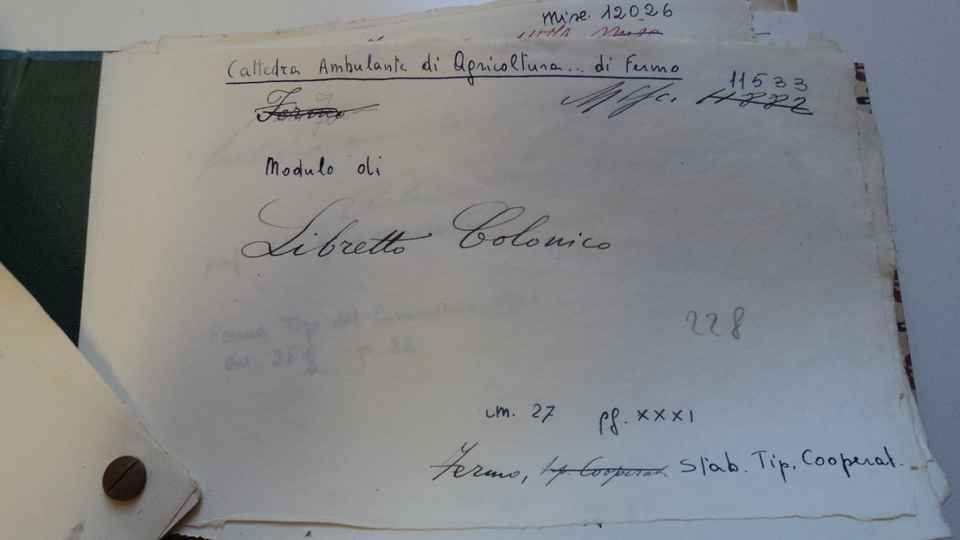 Misc. 12026
Cattedra Ambulante di Agricoltura... di Fermo
11533
Fermo
Modulo di
Libretto Colonico
228
cm. 27 pg. XXXI
Fermo, Tip. Cooperat. Stab. Tip. Cooperat.